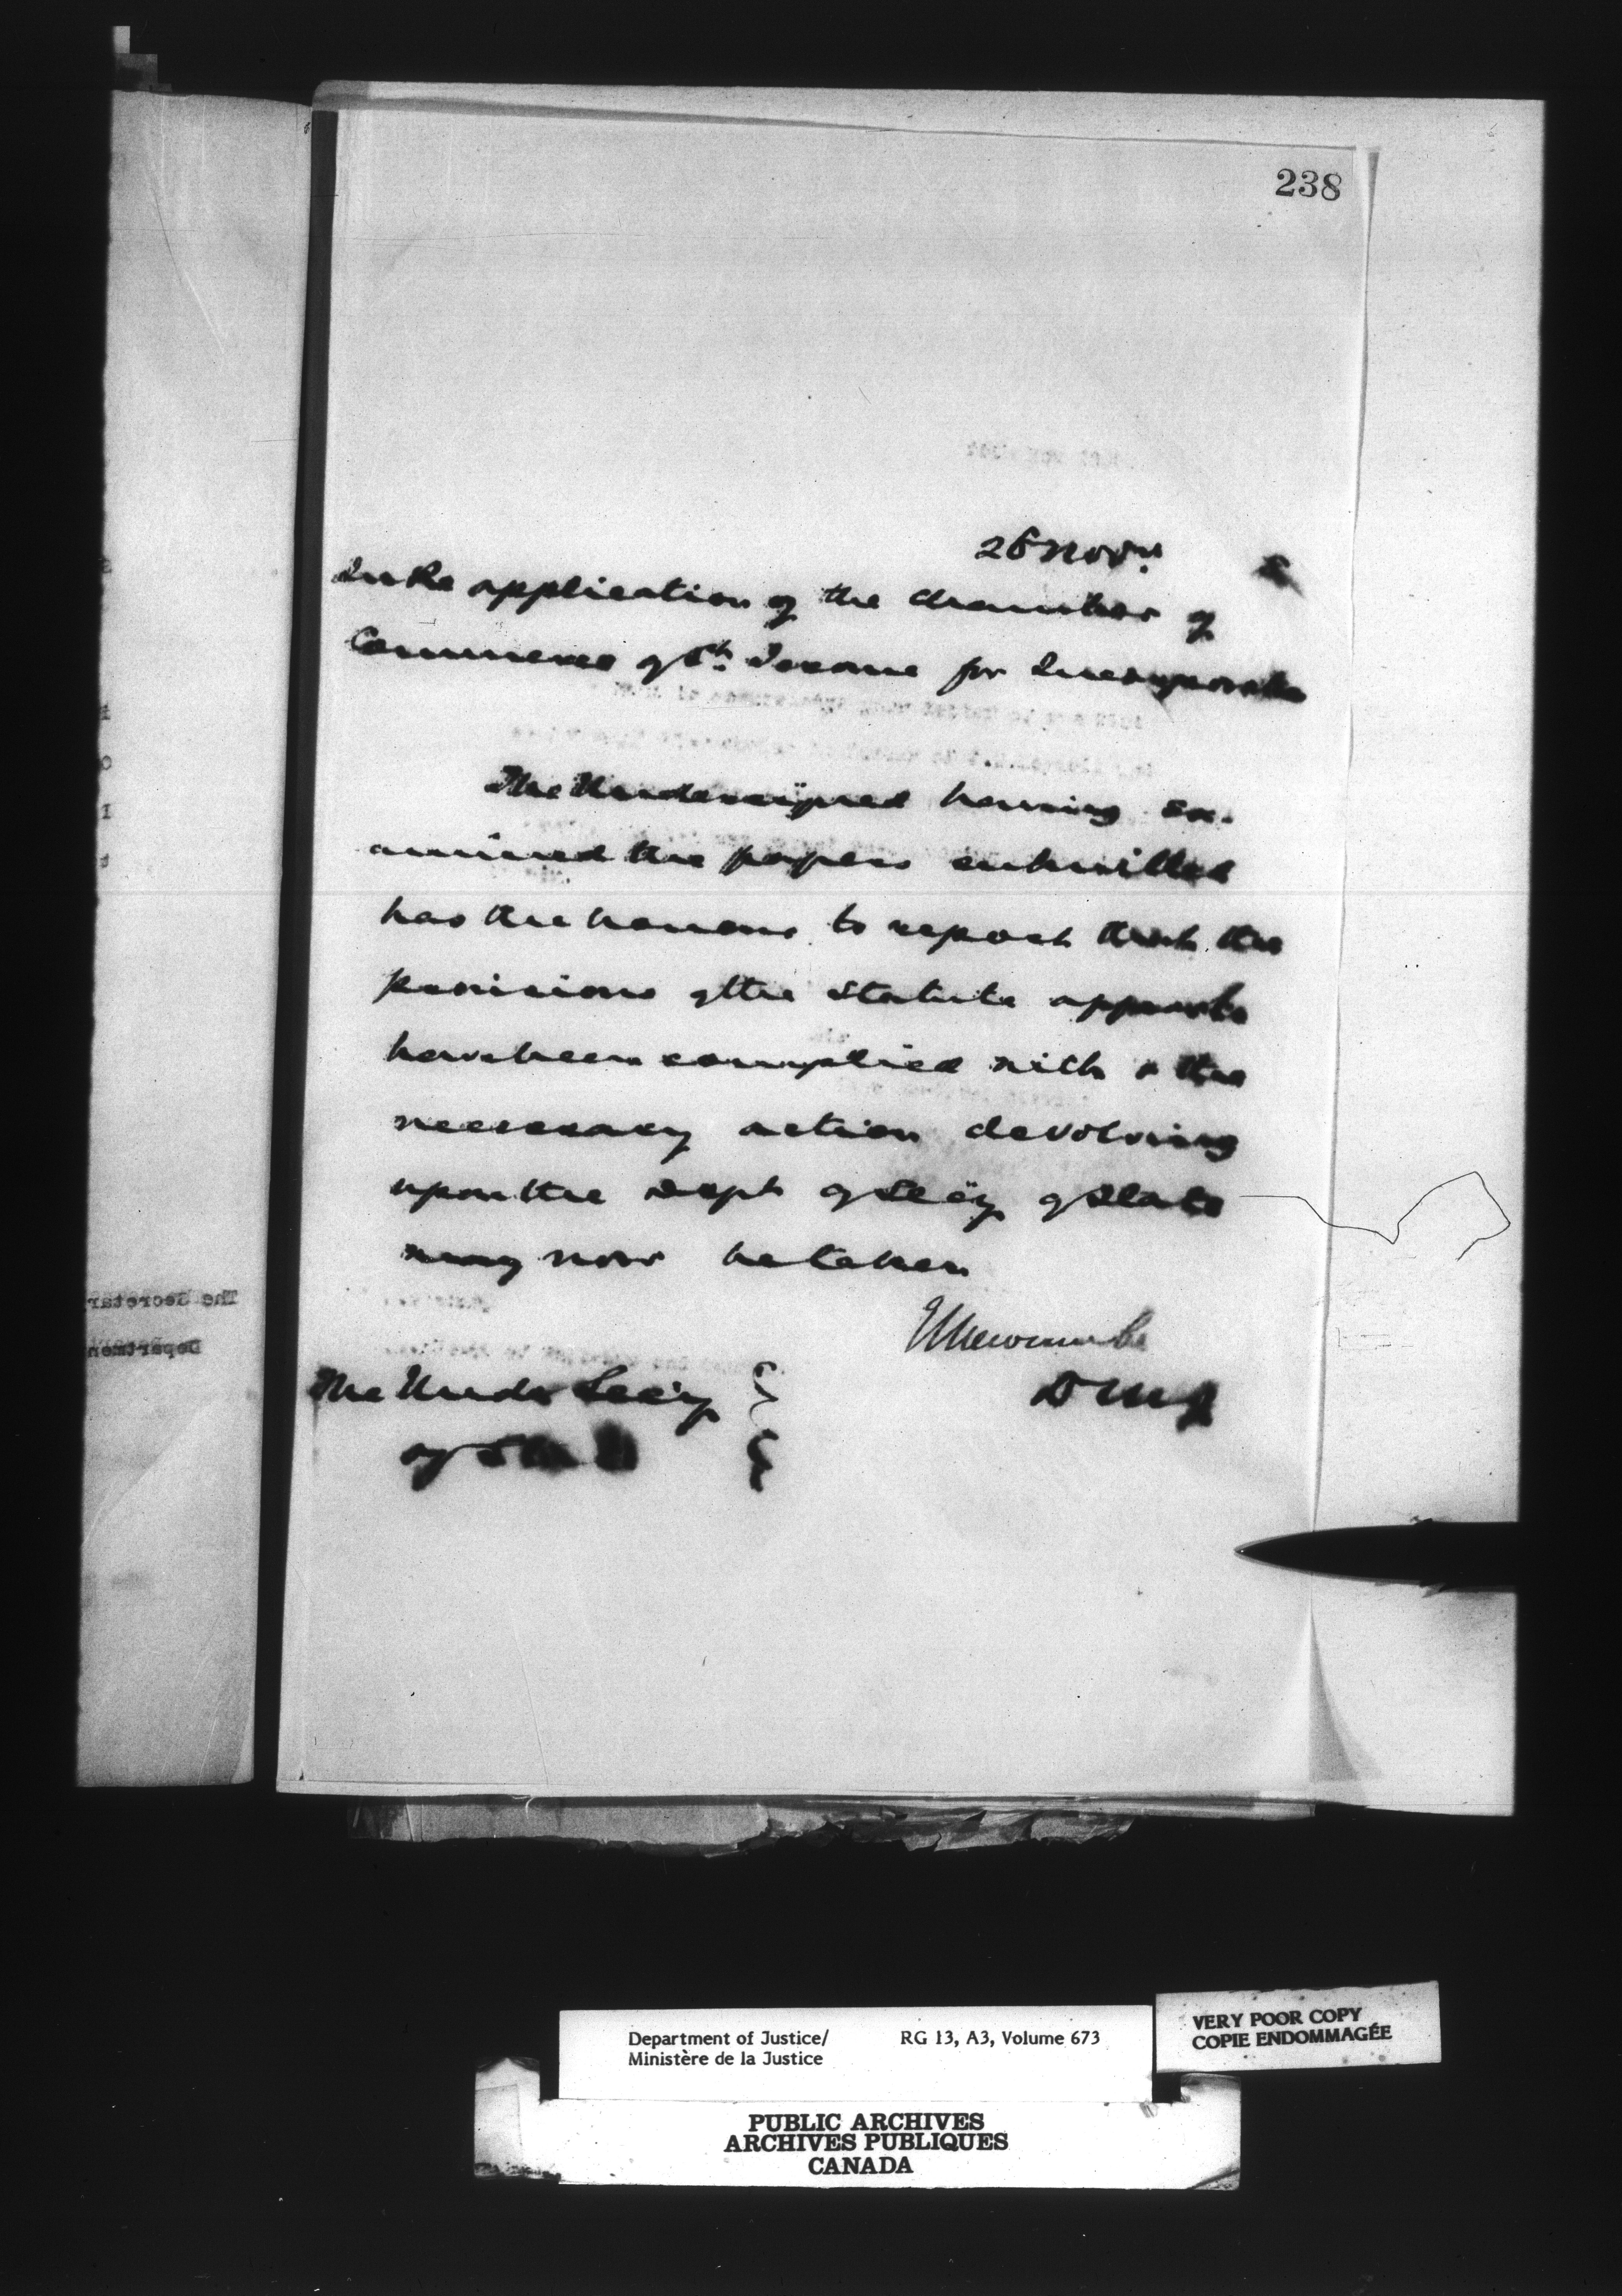 238
26 Novr.
In Re application of the Chamber of
Commerce of St. Jerome for Incorporation
The Undersigned having ex-
amined the papers submitted
has the honour to report that the
provisions of the Statute appear to
have been complied with & the
necessary action devolving
upon the Dept of Secy of State
may now be taken
E L Newcombe
D M J
The Under Secy
of State
The Secretar
Departmen
Department of Justice/ RG 13, A3, Volume 673
Ministère de la Justice
VERY POOR COPY
COPIE ENDOMMAGÉE
PUBLIC ARCHIVES
ARCHIVES PUBLIQUES
CANADA